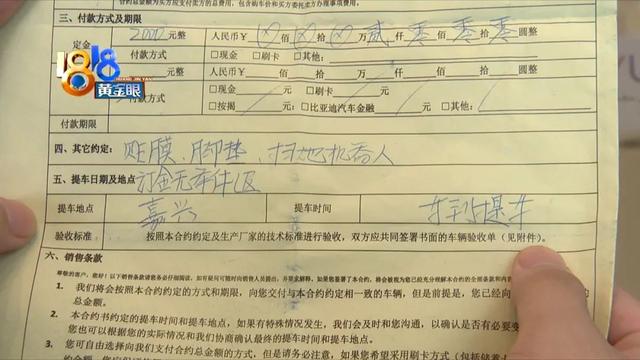 三、付款方式及期限
定金 2000 元整 人民币¥ ⊗ 佰 ⊗ 拾 ⊗ 万 贰 仟 零 佰 零 拾 零 圆整
付款方式 □现金 □刷卡 □其他:
元整 人民币¥ 佰 拾 万 仟 佰 拾 圆整
1818
黄金眼
付款方式 □现金 元 □刷卡 元
□按揭 元; □比亚迪汽车金融 元; □其他:
付款期限
四、其它约定: 贴膜、脚垫、扫地机器人
五、提车日期及地点: 订金无条件退
提车地点 嘉兴 提车时间 车到提车
验收标准: 按照本合约约定及生产厂家的技术标准进行验收,双方应共同签署书面的车辆验收单(见附件)。
六、销售条款
1. 我们将会按照本合约约定的方式和期限,向您交付与本合约约定相一致的车辆,但是前提是,您已经向
总金额。
2. 本合约书约定的提车时间和提车地点,如果有特殊情况发生,我们会及时和您沟通,以确认是否有必要变
您也可以根据您的实际情况和我们协商确认最终的提车时间和
3. 您可自由选择向我们支付合约总金额的方式,但是请务必注意,如果您希望采用刷卡方式(包括储蓄